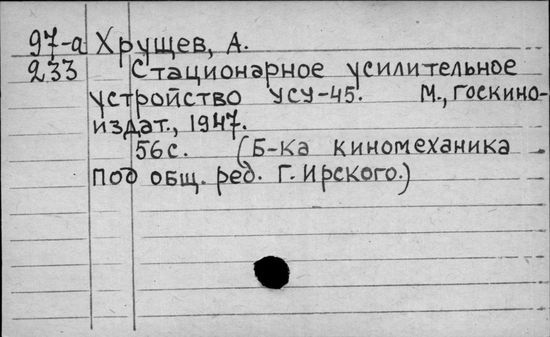 97-а Хрущев, А.
233 Стационарное усилительное
устройство УСУ-45. М., Госкино-
издат., 1947.
56с. (Б-ка киномеханика
под общ. ред. Г. Ирского.)